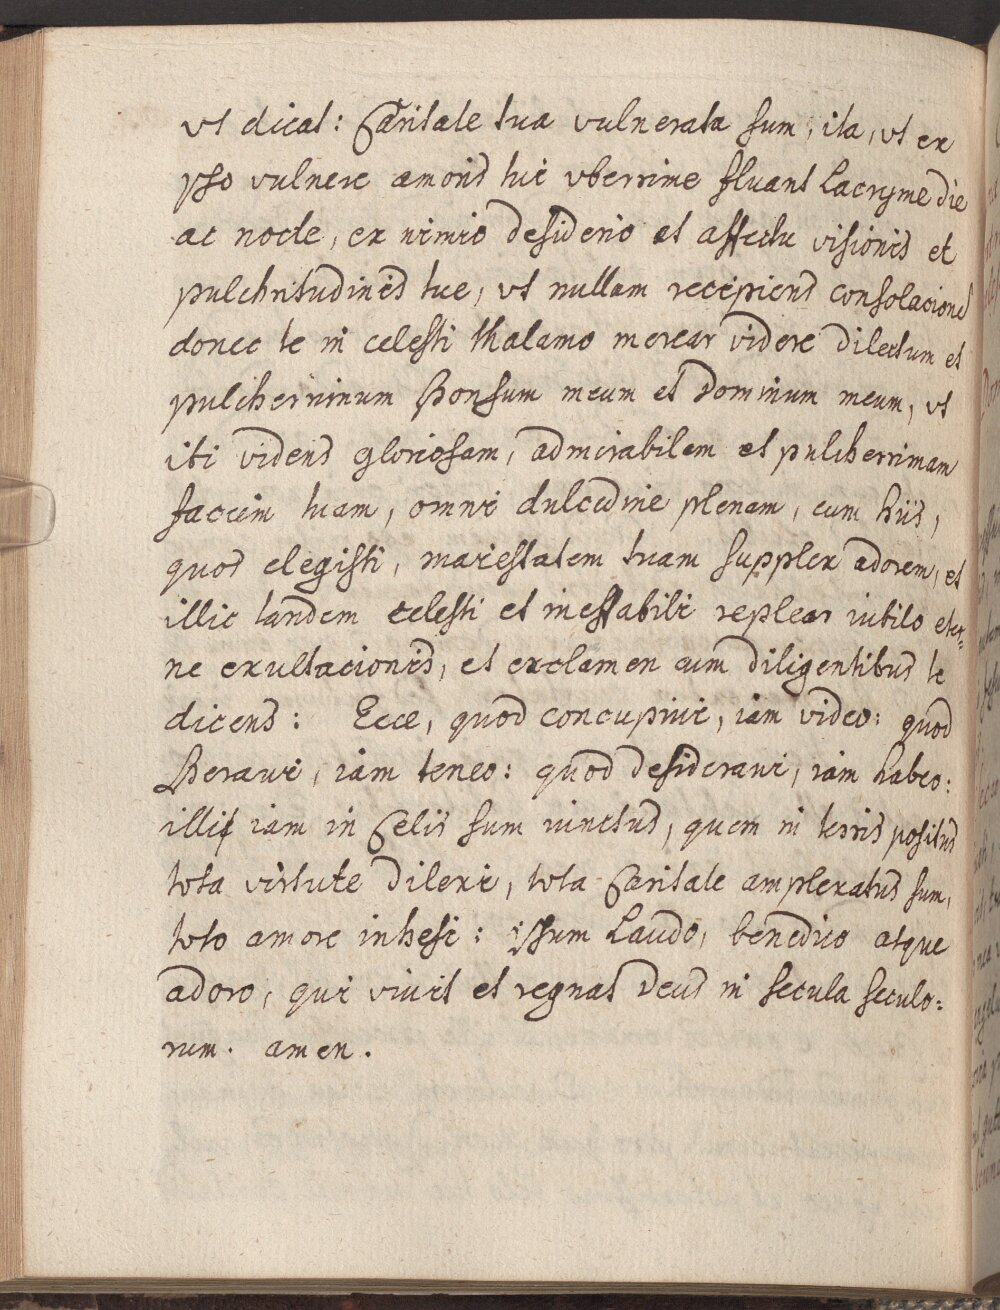 vt dicat: Caritate tua vulnerata sum, ita, vt ex
ypso vulnere amoris tui vberrime fluant Lacryme die
ac nocte, ex nimio desiderio et affectu visionis et
pulchritudinis tue, vt nullam recipiens consolaciones
donec te in celesti thalamo merear videre dilectum et
pulcherrimum sponsum meum et Dominum meum, vt
ibi videns gloriosam, admirabilem et pulcherrimam
faciem tuam, omni dulcedine plenam, cum hiis,
quos elegisti, maiestatem tuam supplex adorem, et
illic tandem celesti et ineffabili replear iubilo eter-
ne exultacionis, et exclamen cum diligentibus te
dicens: Ecce, quod concupiui, iam video: quod
speraui, iam teneo: quod desideraui, iam habeo:
illi iam in Celis sum iunctus, quem in terris positus
tota virtute dilexi, tota Caritate amplexatus sum,
toto amore inhesi: ipsum Laudo, benedico atque
adoro, qui viuis et regnas Deus in secula seculo-
rum. amen.